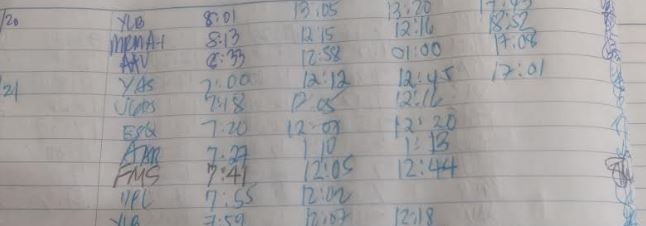 /20 YLB 8:01 13:05 13:20 17:43
MRMA-1 8:13 12:15 12:16 18:52
AAV 8:33 12:58 01:00 17:08
21 YAS 7:00 12:12 12:45 17:01
7:18 12:05 12:16
ESQ 7:20 12:07 12:20
AMR 7:27 1:10 1:13
FMS 7:41 12:05 12:44
VPL 7:55 12:02
YLB 7:59 12:07 12:18